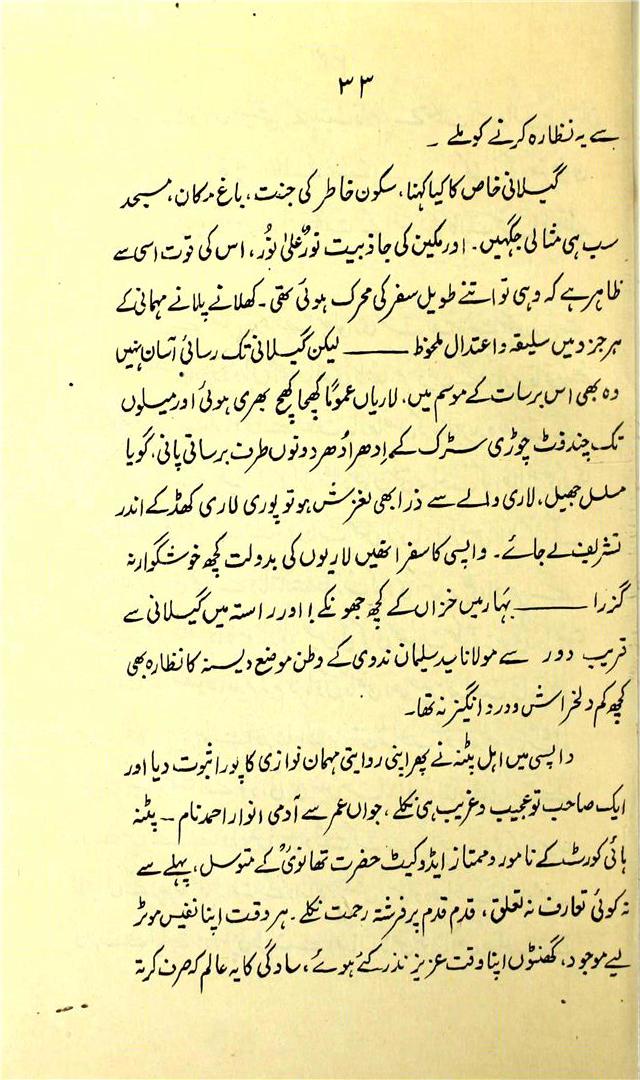 ۳۳
سے یہ نظارہ کرنے کو ملے ۔
گیلانی خاص کا کیا کہنا، سکون خاطر کی جنت، باغ مکان، مسجد
سب ہی مثالی جگہیں۔ اور مکین کی جاذبیت نورٌ علیٰ نُور، اس کی قوت اسی سے
ظاہر ہے کہ وہی تو اتنے طویل سفر کی محرک ہوئی تھی۔ کھلانے پلانے مہمانی کے
ہر جزو میں سلیقہ و اعتدال ملحوظ ــــــ لیکن گیلانی تک رسائی آسان نہیں
وہ بھی اس برسات کے موسم میں، لاریاں عموماً کھچا کھچ بھری ہوئی اور میلوں
تک چند فٹ چوڑی سڑک کے اِدھر اُدھر دونوں طرف برساتی پانی، گویا
مسلسل جھیل، لاری والے سے ذرا بھی لغزش ہو تو پوری لاری کھڈ کے اندر
تشریف لے جائے۔ واپسی کا سفر انھیں لاریوں کی بدولت کچھ خوشگوار نہ
گزرا ــــــ بہار میں خزاں کے کچھ جھونکے! اور راستہ میں گیلانی سے
قریب دور سے مولانا سید سلیمان ندوی کے وطن موضع دیسنہ کا نظارہ بھی
کچھ کم دلخراش و درد انگیز نہ تھا۔
واپسی میں اہل پٹنہ نے پھر اپنی روایتی مہمان نوازی کا پورا ثبوت دیا اور
ایک صاحب تو عجیب و غریب ہی نکلے، جواں عمر سے آدمی انوار احمد نام ــ پٹنہ
ہائی کورٹ کے نامور و ممتاز ایڈوکیٹ حضرت تھانویؒ کے متوسل، پہلے سے
نہ کوئی تعارف نہ تعلق، قدم قدم پر فرشتہ رحمت نکلے۔ ہر وقت اپنا نفیس موٹر
لیے موجود، گھنٹوں اپنا وقت عزیز نذر کئے ہوئے، سادگی کا یہ عالم کہ صرف کرتہ